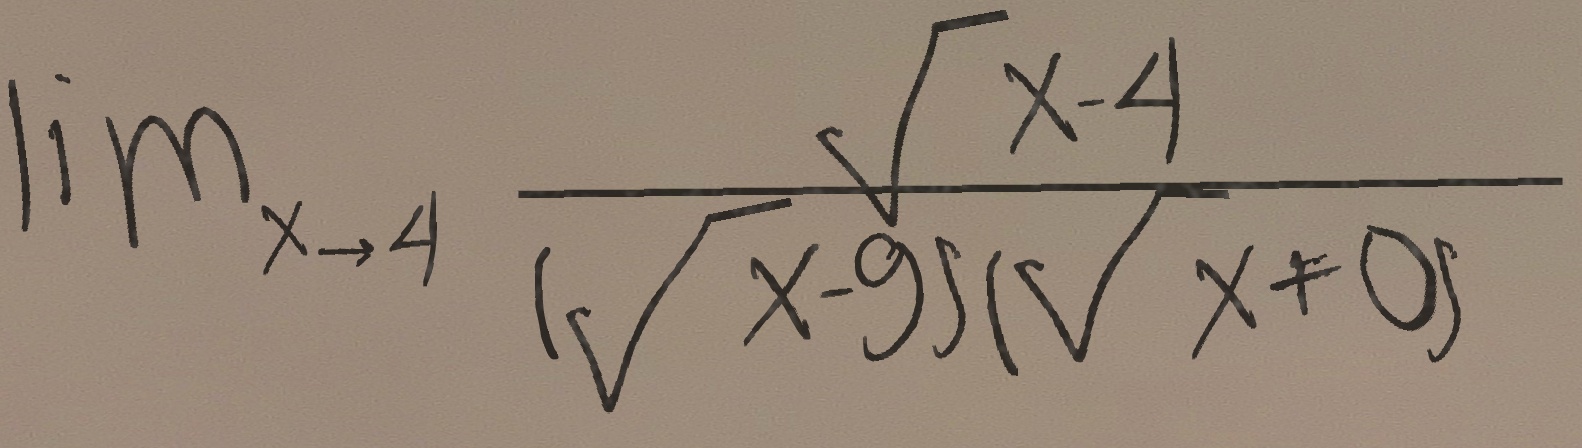 \lim_{x \to 4} \frac{\sqrt{x-4}}{(\sqrt{x-9})(\sqrt{x+0})}